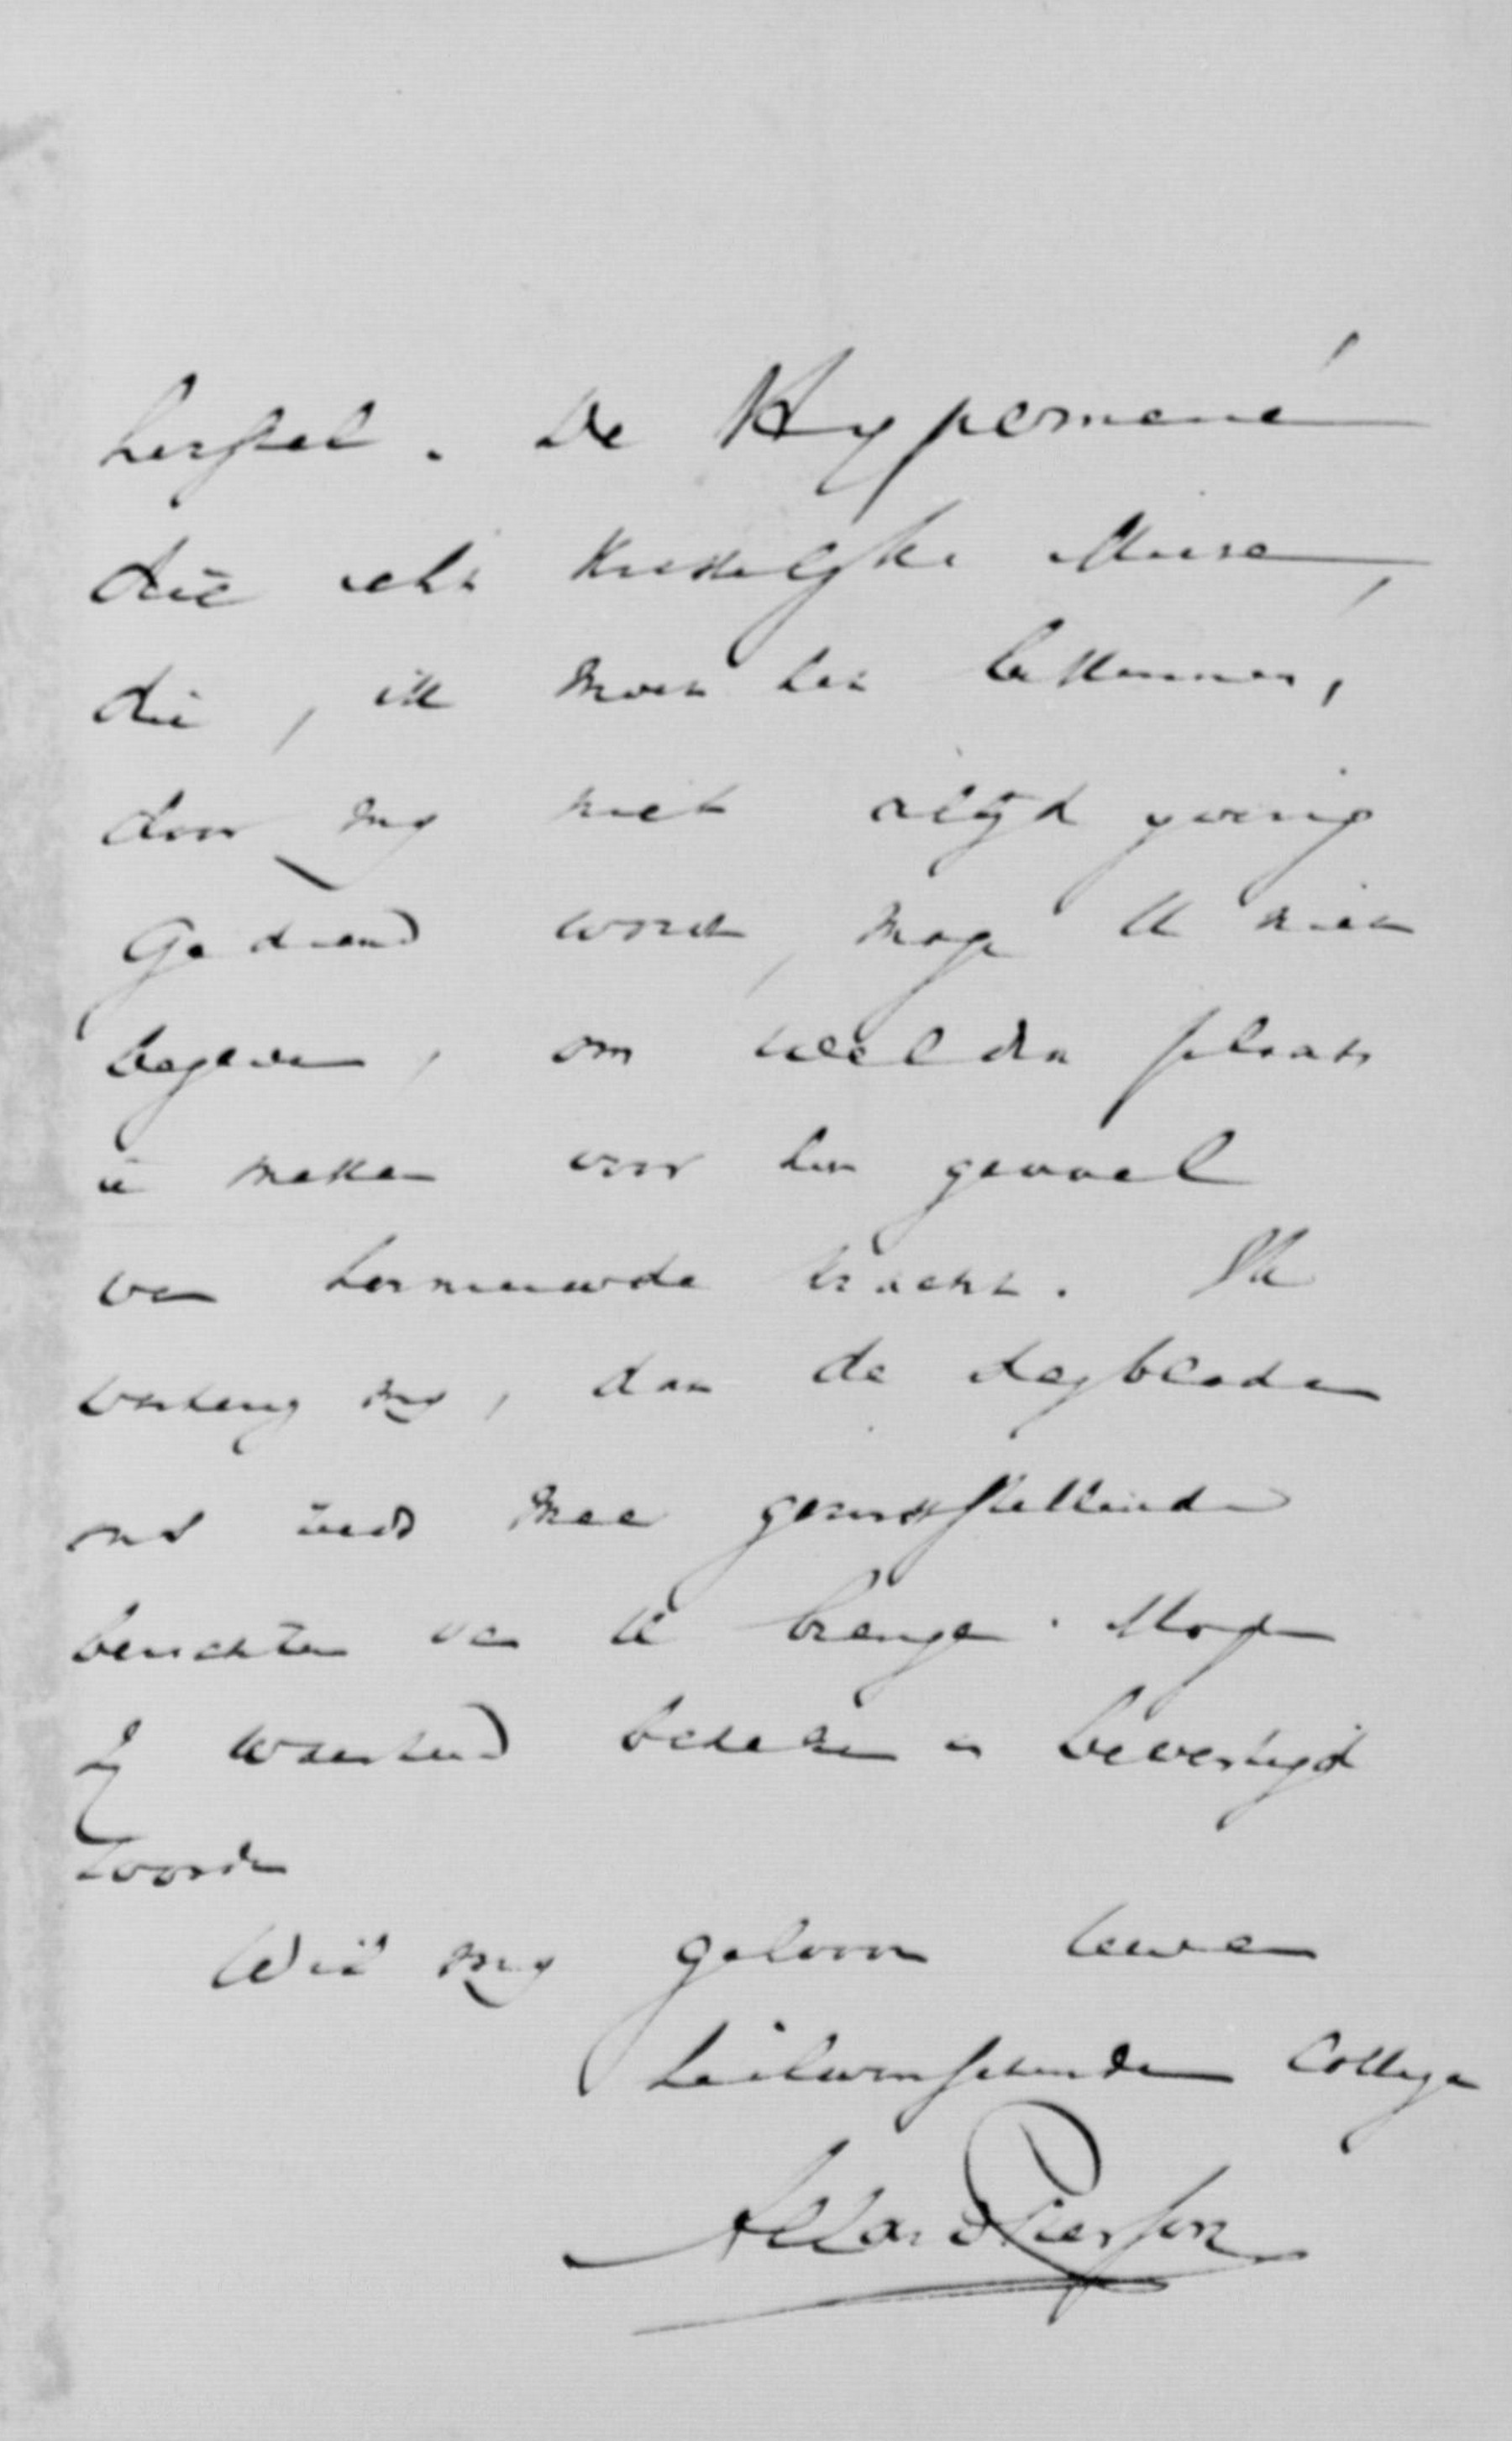 herstel. De Hypomené
die echt Kristelijke Muse,
die, ik moet het bekennen,
door mij niet altijd yverig
gediend wordt, mage U niet
begeven, om weldra plaats
te maken voor het gevoel
van hernieuwde kracht. Ik
verheug mij, dat de dagbladen
ons reeds meer geruststellende
berichten van U brengen. Mogen
zij waarheid behelzen en bevestigd
worden
Wil mij gelooven Uwen
heilwenschenden Collega
Allard Pierson